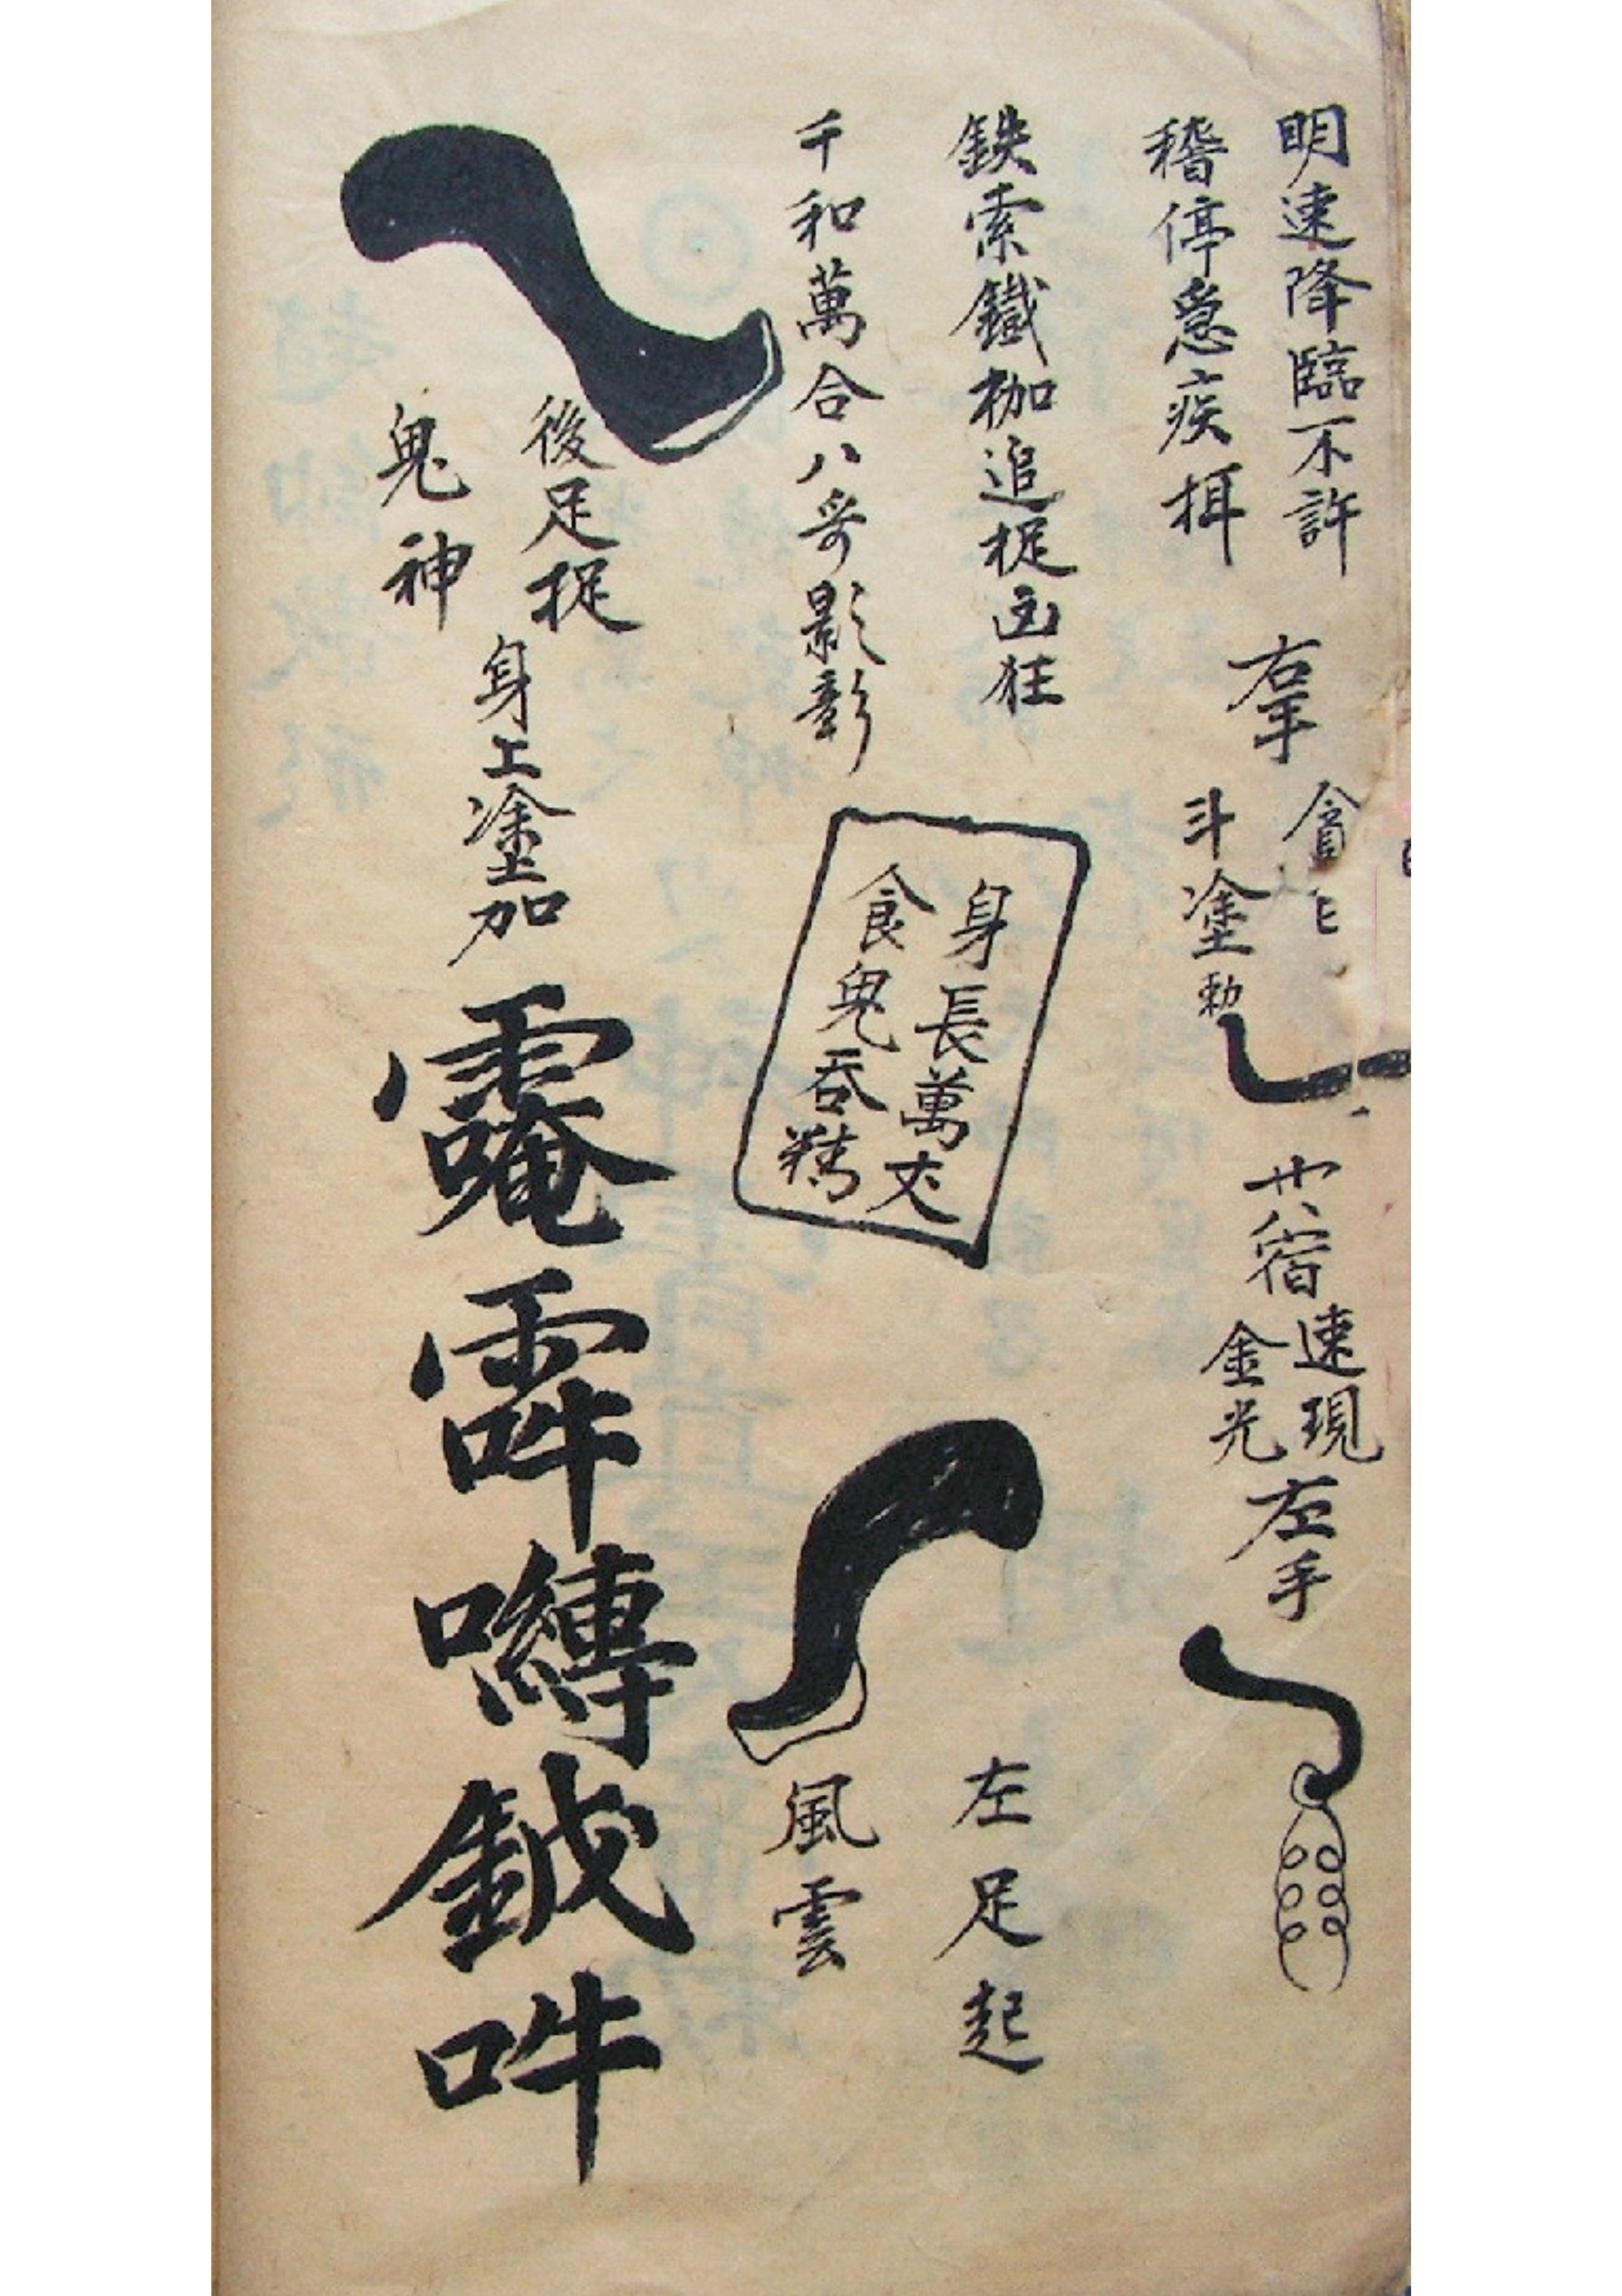 明速降臨不許
稽停急疾揖
右手
貪
斗塗勅
廿八宿
速現
金光
左手
鉄索鐵枷追捉凶狂
千和萬合八哥影彰
身長萬丈
食鬼吞精
左足起
風雲
後足捉
鬼神
身上塗加
吽
囀
鉞
吽